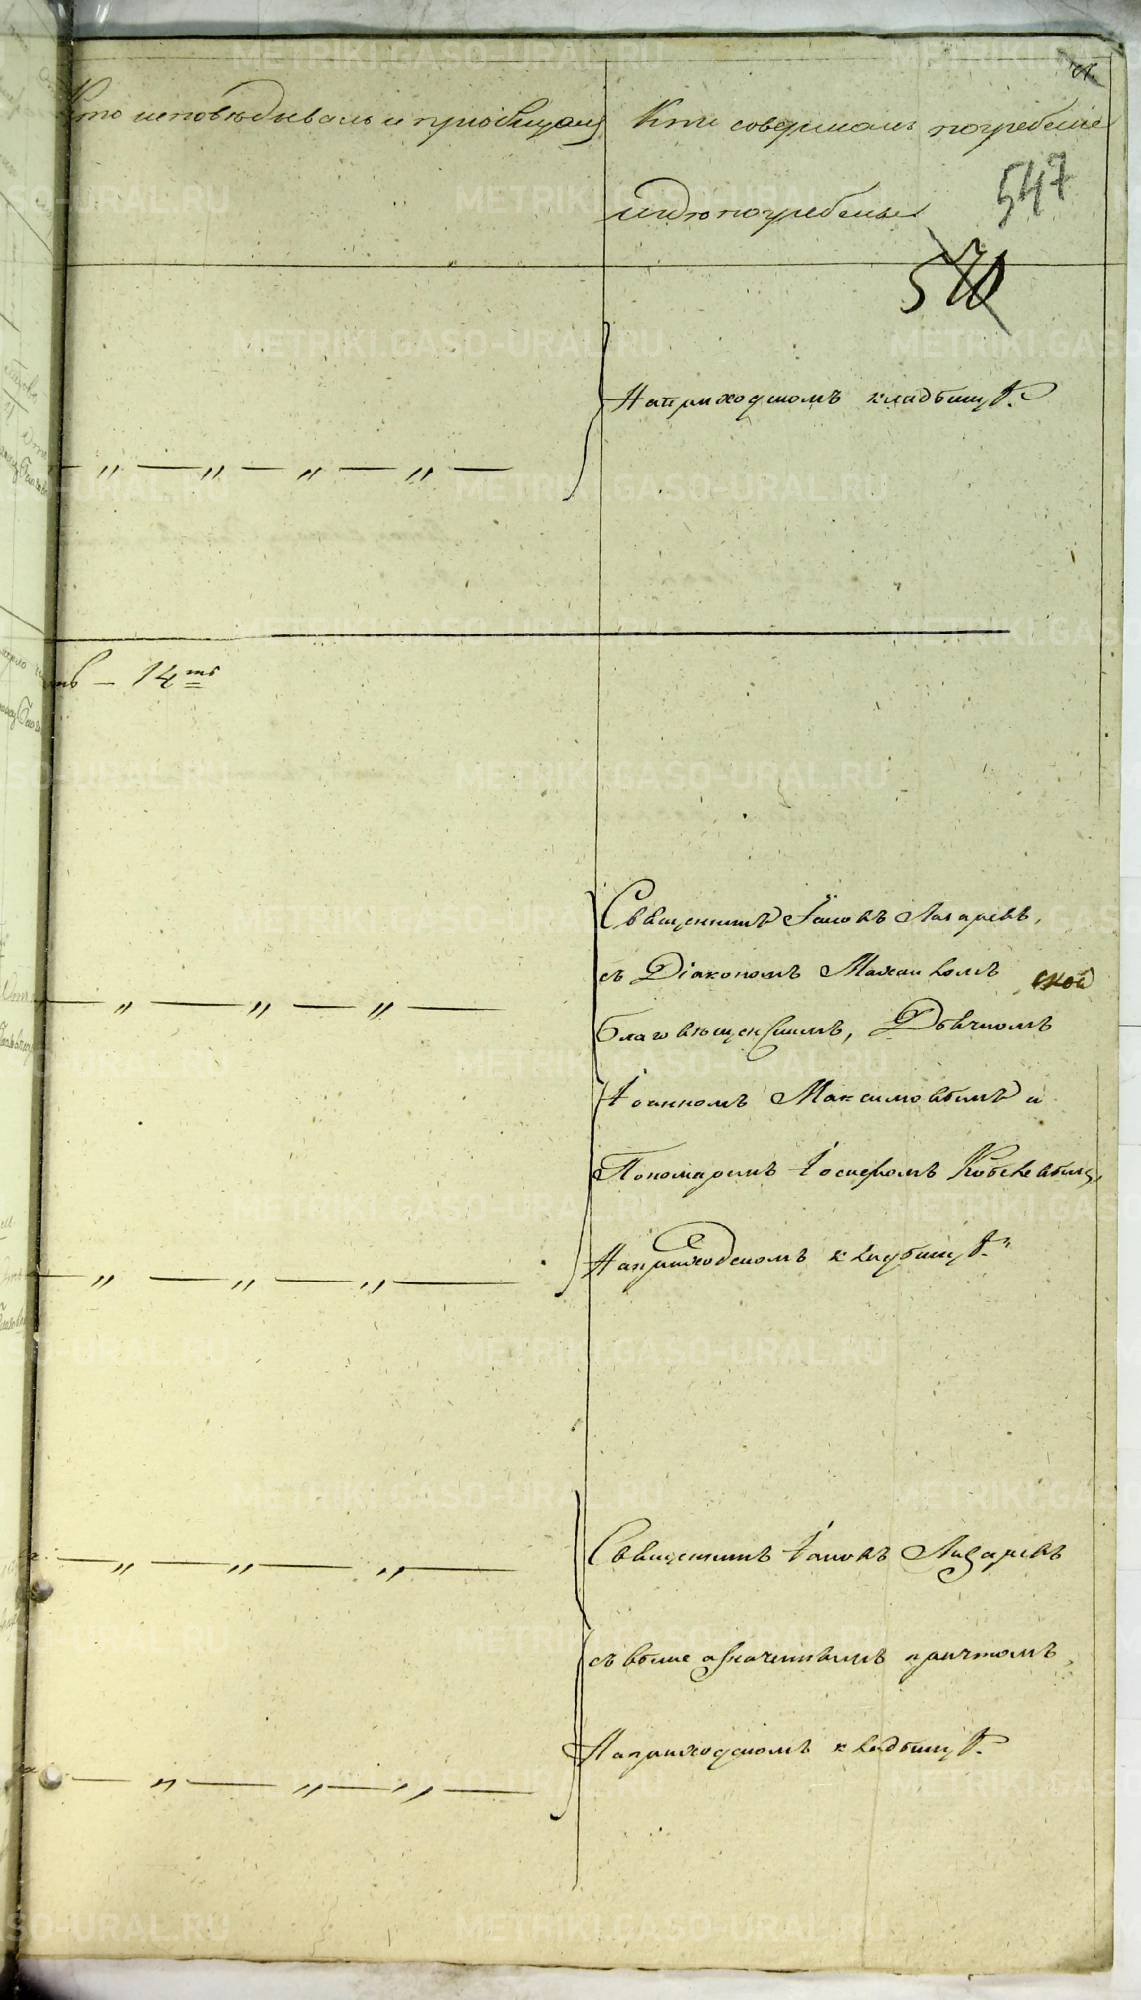 Кто исповѣдывалъ и приобщалъ
Кто совершалъ погребеніе
и гдѣ погребены
547
570
На приходскомъ кладбищѣ.
14
Священникъ Іаковъ Лазаревъ,
съ Діакономъ Михаиломъ
ской
Благовѣщенскимъ, Дьячкомъ
Іоанномъ Максимовымъ и
Пономаремъ Іосифомъ
На приходскомъ кладбищѣ.
Священникъ Іаковъ Лазаревъ
съ выше означеннымъ причтомъ,
На приходскомъ кладбищѣ.
METRIKI.GASO-URAL.RU